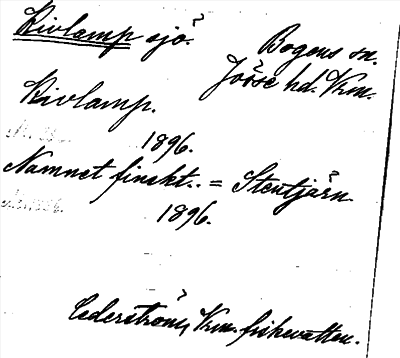 Kivlamp sjö?
Bogens sn.
Jösse hd. Vrm.
Kivlamp.
1896.
Namnet finskt.. = Stentjärn.
1896.
Cederström, Vrm. fiskevatten.